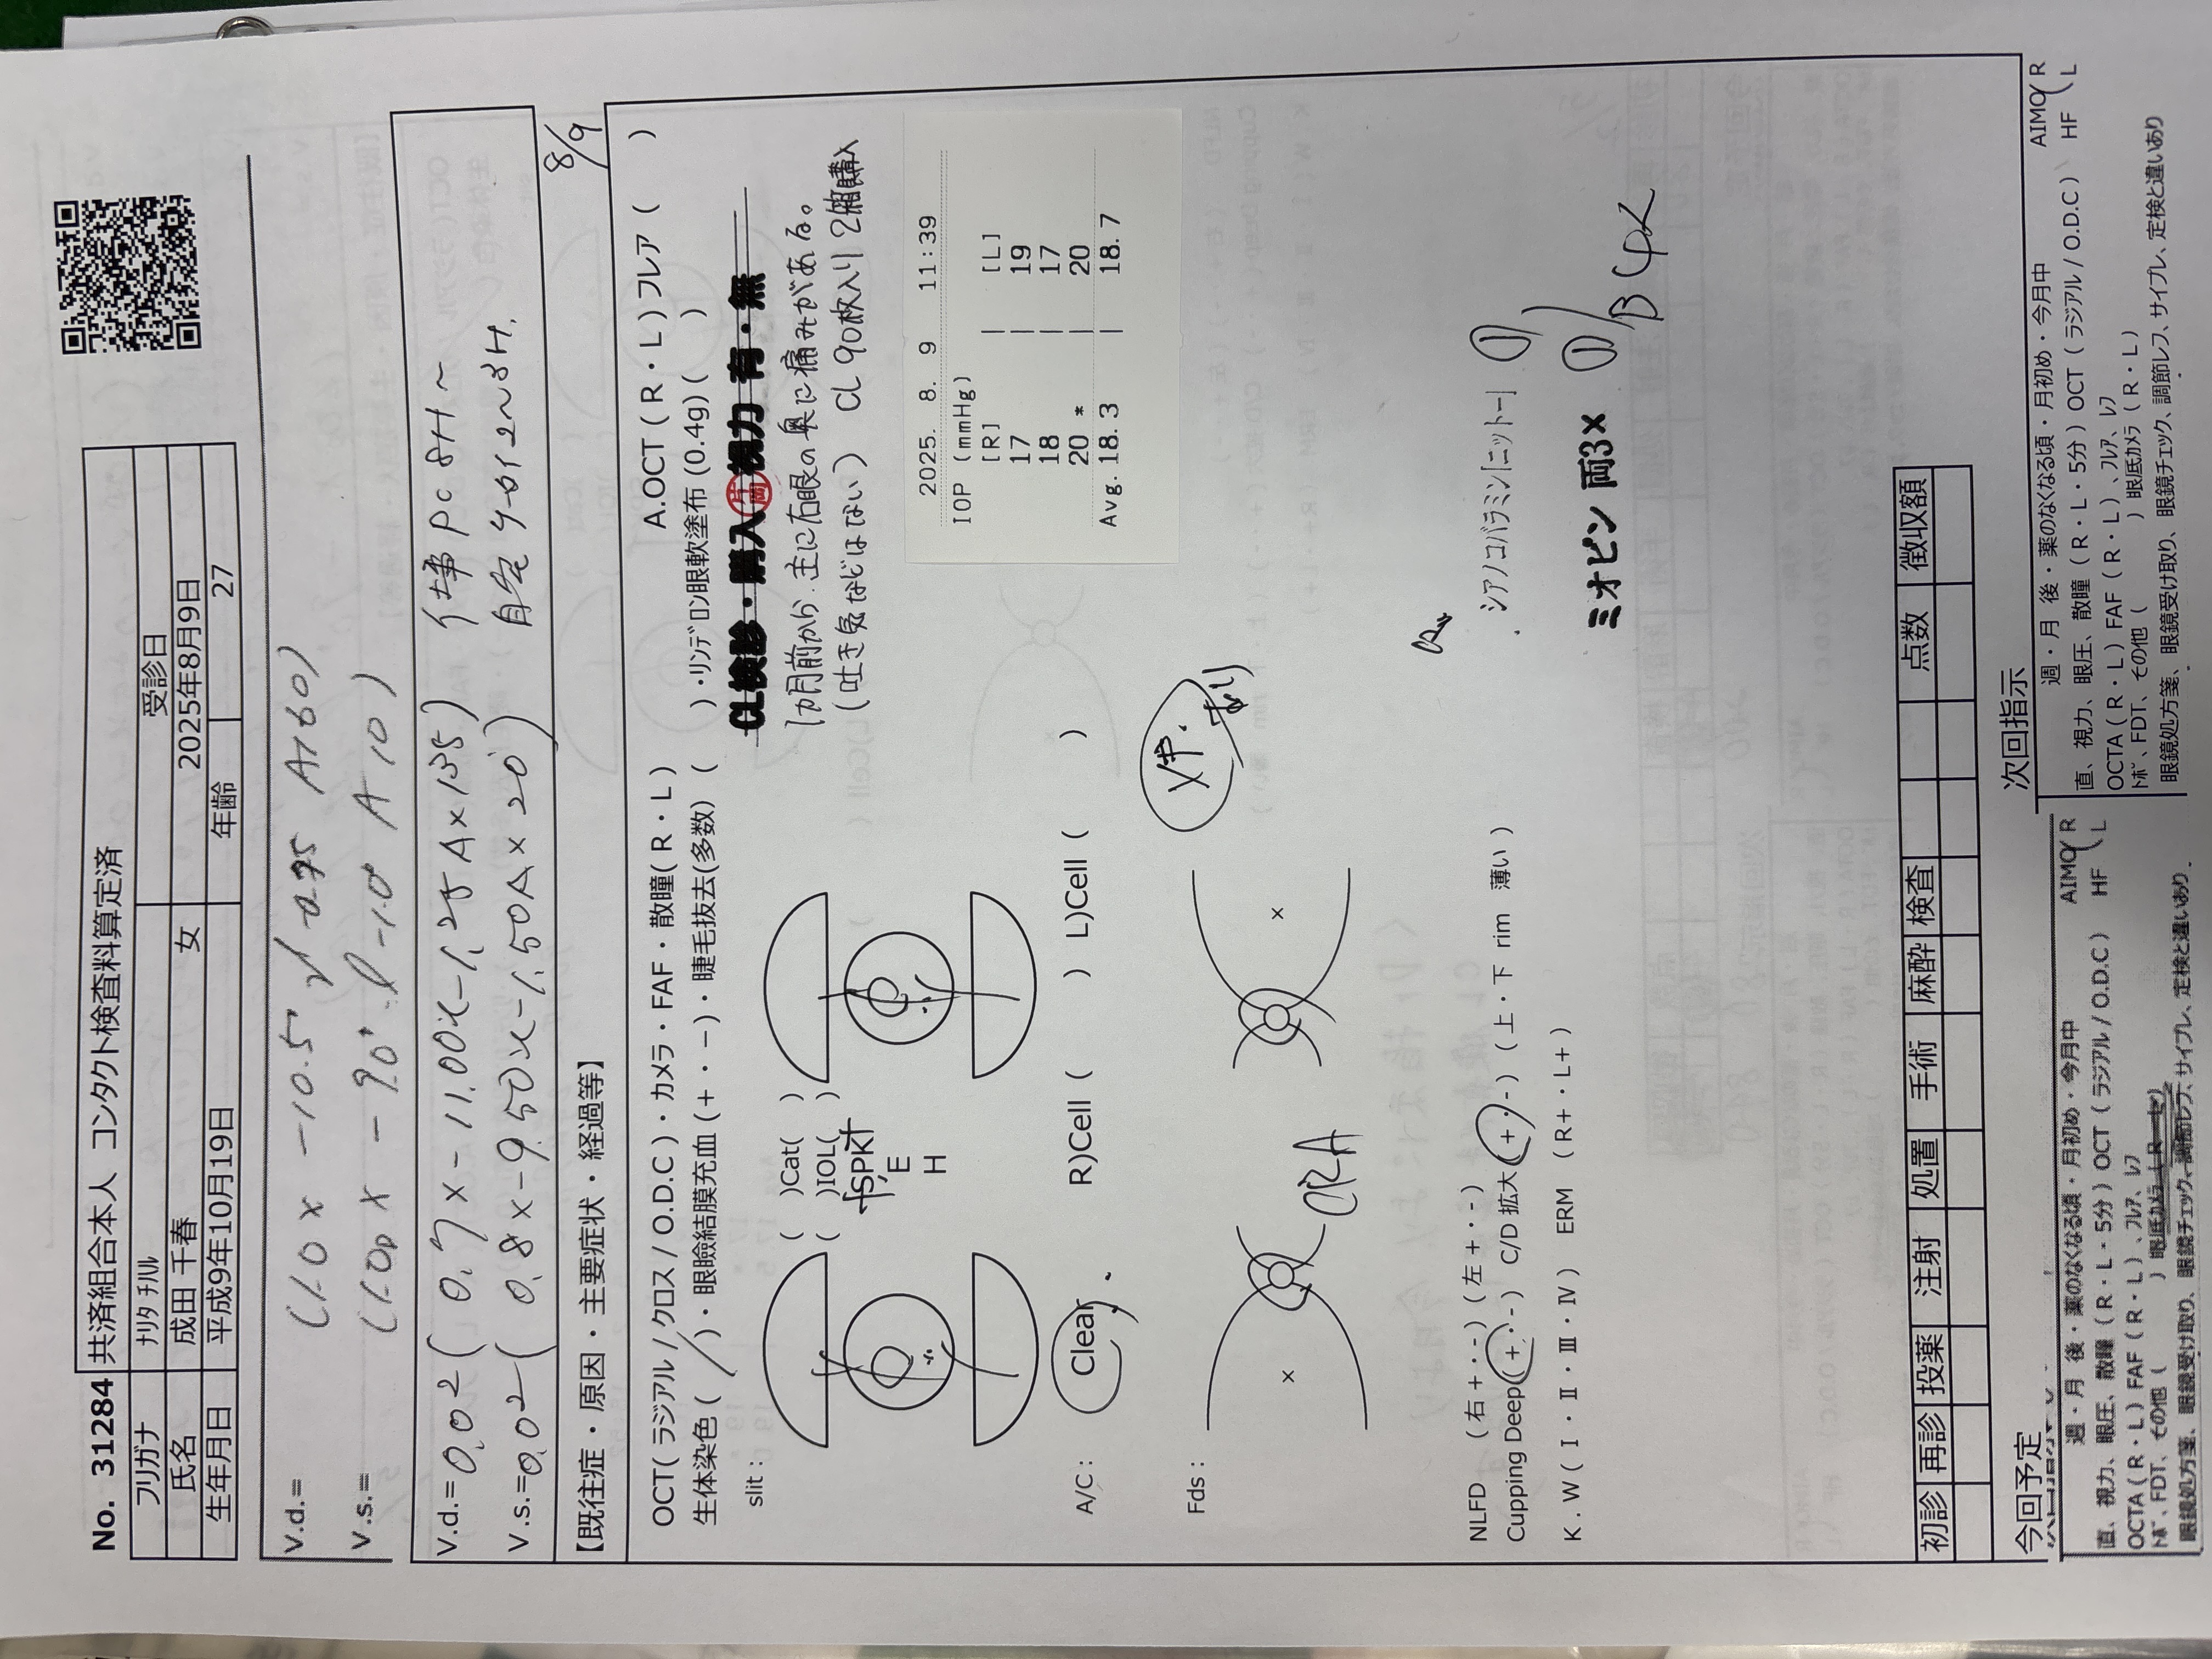 No. 31284 共済組合本人 コンタクト検査料算定済
フリガナ ﾅﾘﾀ ﾁﾊﾙ 受診日
氏名 成田 千春 女 2025年8月9日
生年月日 平成9年10月19日 年齢 27
V.d.= (1.0 x -10.5 -0.75 A160)
V.s.= (1.0p x -9.0 -1.0 A 10)
V.d.= 0.02 ( 0.7 x -11.00 -1.25 A x 135 ) 仕事 PC 8H～
V.s.= 0.02 ( 0.8 x -9.50 -1.50 A x 20 ) 自宅 2～3H.
【既往症・原因・主要症状・経過等】 8/9
OCT( ラジアル / クロス / O.D.C )・カメラ・FAF・散瞳( R・L ) A.OCT ( R・L ) フレア ( )
生体染色 ( / )・眼瞼結膜充血 (+・−)・睫毛抜去(多数) ( )・ﾘﾝﾃﾞﾛﾝ眼軟塗布 (0.4g) ( )
slit : CL検診・購入 片岡 視力 有・無
( )Cat( )
1カ月前から 主に右眼の奥に痛みがある。
( )IOL( )
(吐き気などはない) CL 90枚入り 2箱購入
+SPK+
E
H
2025. 8. 9 11:39
IOP (mmHg)
[R] | [L]
17 | 19
18 | 17
20 * | 20
Avg. 18.3 | 18.7
A/C : Clear R)Cell ( ) L)Cell ( )
Fds : あり
CRA
NLFD (右 +・-) (左 +・-)
Cupping Deep ( +・- ) C/D 拡大 ( +・- ) ( 上・下 rim 薄い )
K . W ( Ⅰ・Ⅱ・Ⅲ・Ⅳ ) ERM ( R+・L+ )
シアノコバラミン「ニットー」 ①
ミオピン 両3× ①
初診 再診 投薬 注射 処置 手術 麻酔 検査 点数 徴収額
今回予定
週・月 後・薬のなくなる頃・月初め・今月中 AIMO R
直、視力、眼圧、散瞳 ( R・L・5分 ) OCT ( ラジアル / O.D.C ) HF L
OCTA ( R・L ) FAF ( R・L ) 、ﾌﾚｱ、ﾚﾌ
ﾄﾎﾟ、FDT、その他 ( ) 眼底ｶﾒﾗ ( R・L )
眼鏡処方箋、眼鏡受け取り、眼鏡チェック、調節レフ、サイプレ、定検と違いあり
次回指示
週・月 後・薬のなくなる頃・月初め・今月中 AIMO R
直、視力、眼圧、散瞳 ( R・L・5分 ) OCT ( ラジアル / O.D.C ) HF L
OCTA ( R・L ) FAF ( R・L ) 、ﾌﾚｱ、ﾚﾌ
ﾄﾎﾟ、FDT、その他 ( ) 眼底ｶﾒﾗ ( R・L )
眼鏡処方箋、眼鏡受け取り、眼鏡チェック、調節レフ、サイプレ、定検と違いあり